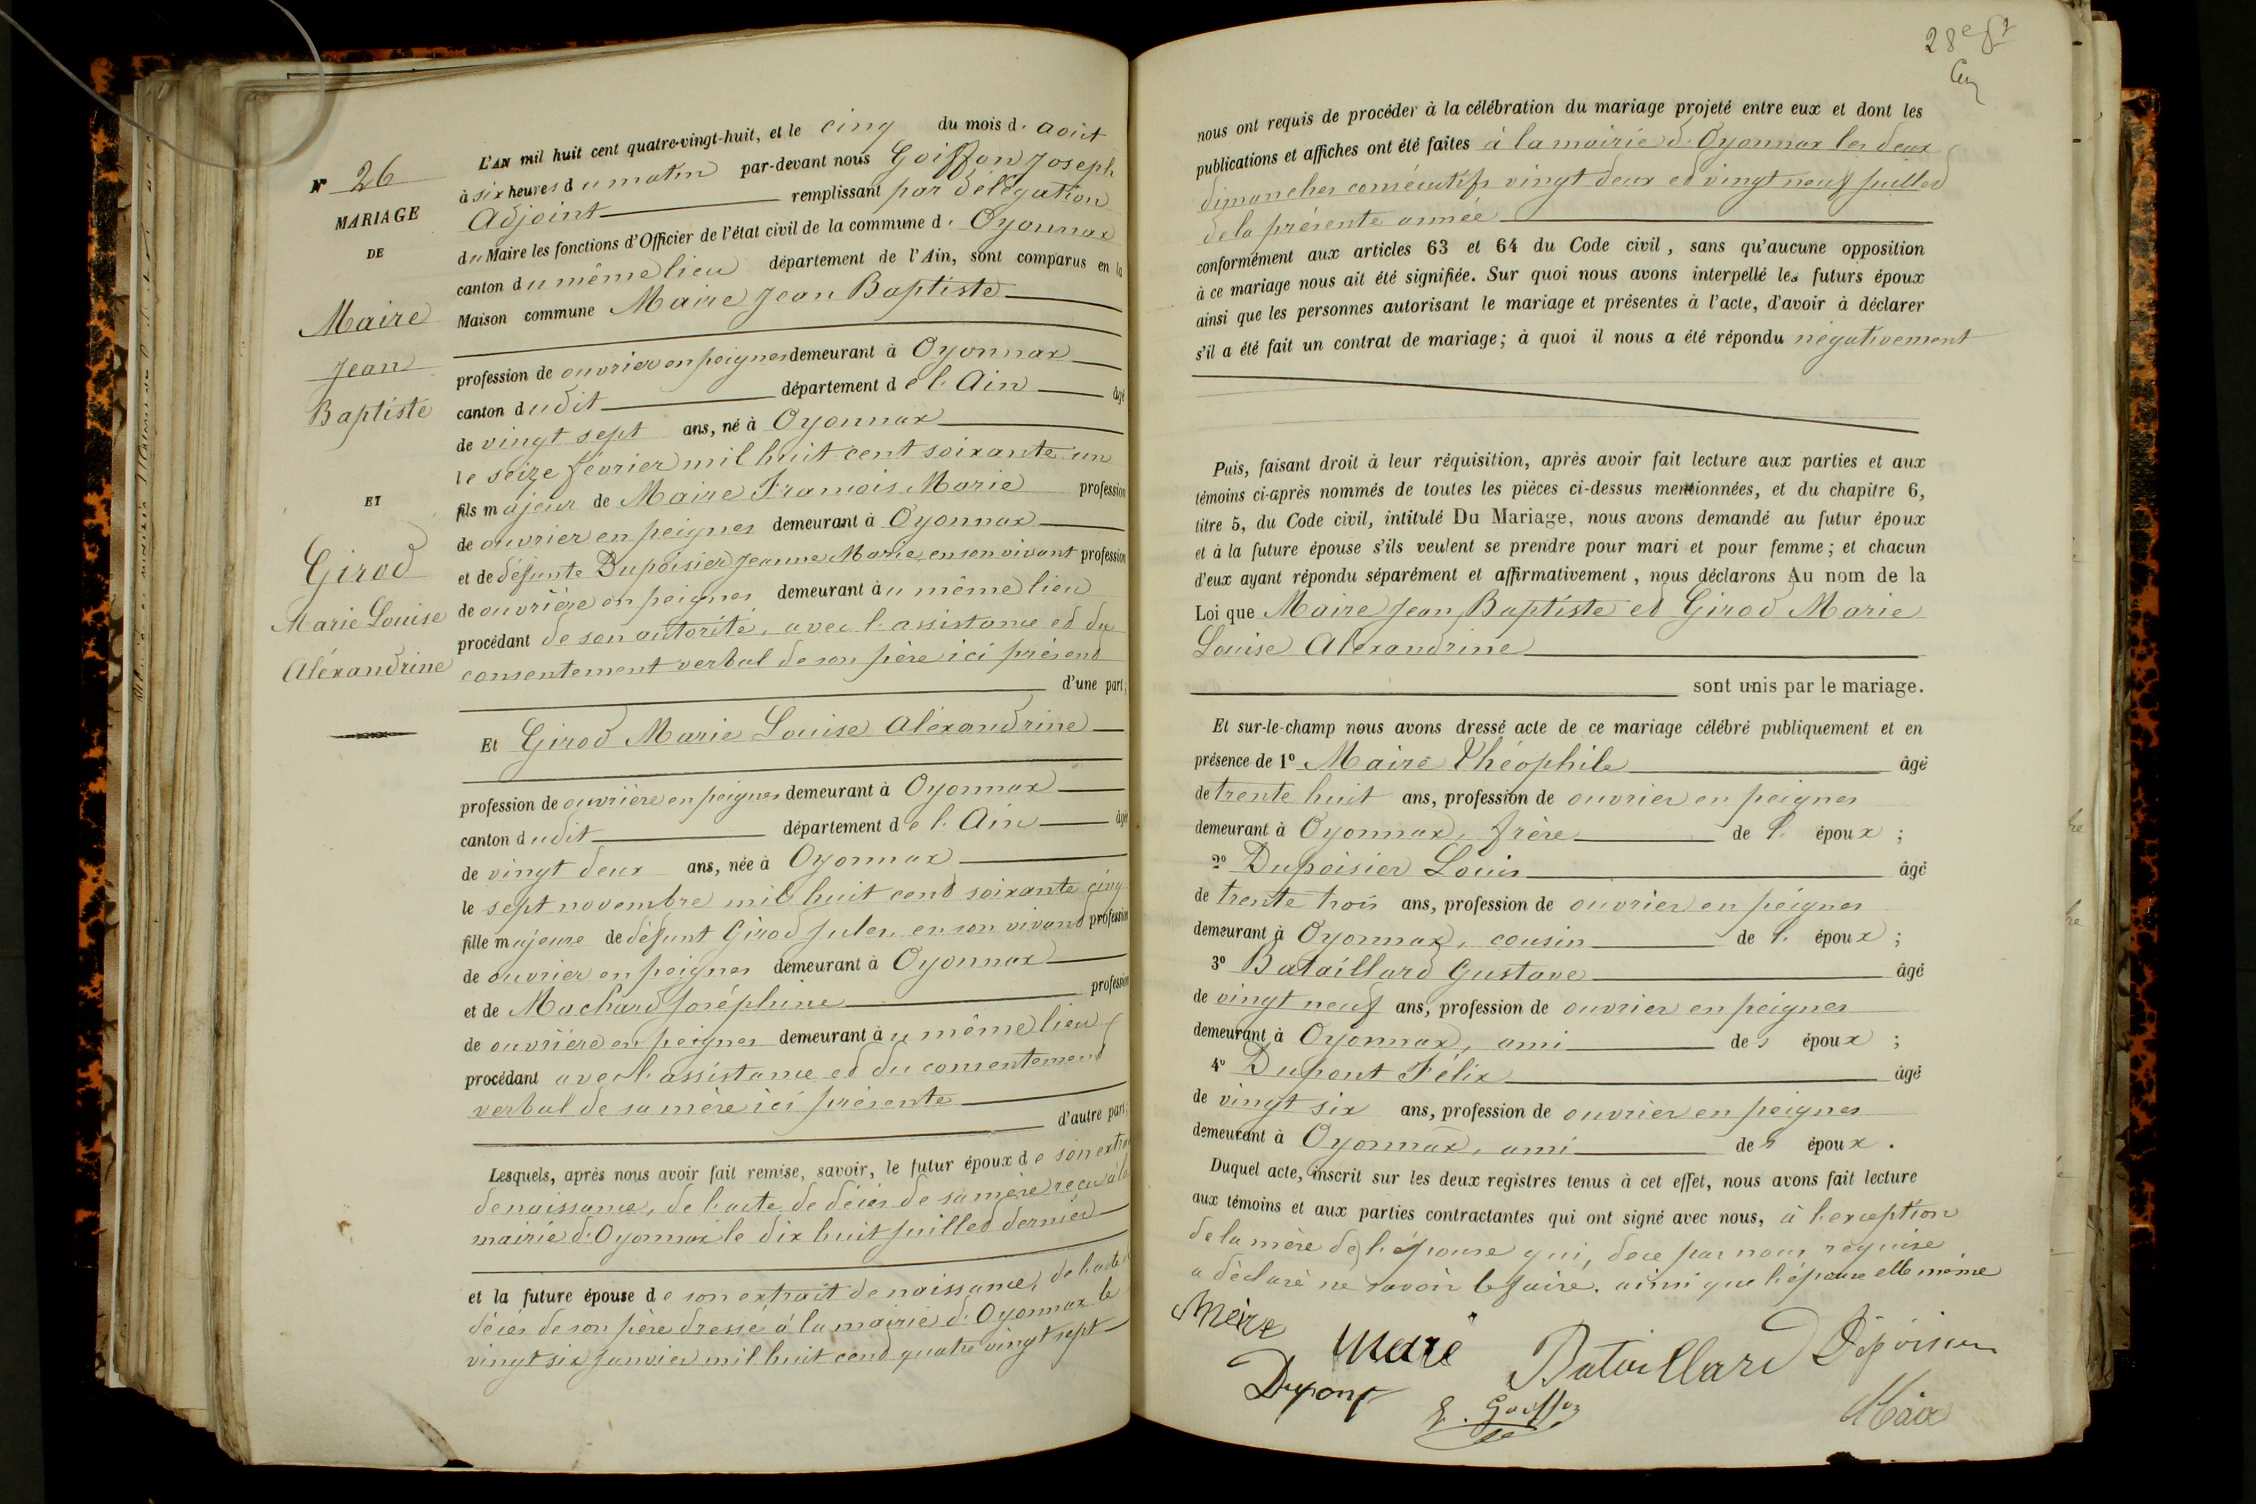 N° 26
MARIAGE
DE
Maire
Jean
Baptiste
ET
Girod
Marie Louise
Aléxandrine
L'AN mil huit cent quatre-vingt-huit, et le cinq du mois d'août
à six heures du matin par-devant nous Goiffon Joseph
Adjoint remplissant par délégation
du Maire les fonctions d'Officier de l'état civil de la commune d'Oyonnax
canton du même lieu département de l'Ain, sont comparus en la
Maison commune Maire Jean Baptiste
profession de ouvrier en peignes demeurant à Oyonnax
canton dudit département de l'Ain âgé
de vingt sept ans, né à Oyonnax
le seize février mil huit cent soixante un
fils majeur de Maire François Marie profession
de ouvrier en peignes demeurant à Oyonnax
et de défunte Dupoisier Jeanne Marie, en son vivant profession
de ouvrière en peignes demeurant au même lieu
procédant de son autorité, avec l'assistance et du
consentement verbal de son père ici présent
d'une part;
Et Girod Marie Louise Aléxandrine
profession de ouvrière en peignes demeurant à Oyonnax
canton dudit département de l'Ain âgée
de vingt deux ans, née à Oyonnax
le sept novembre mil huit cent soixante cinq
fille majeure de défunt Girod Jules, en son vivant profession
de ouvrier en peignes demeurant à Oyonnax
et de Machard Joséphine profession
de ouvrière en peignes demeurant au même lieu
procédant avec l'assistance et du consentement
verbal de sa mère ici présente
d'autre part;
Lesquels, après nous avoir fait remise, savoir, le futur époux de son extrait
de naissance, de l'acte de décès de sa mère reçu à la
mairie d'Oyonnax le dix huit juillet dernier
et la future épouse de son extrait de naissance, de l'acte de
décès de son père dressé à la mairie d'Oyonnax le
vingt six janvier mil huit cent quatre vingt sept
28e ft
nous ont requis de procéder à la célébration du mariage projeté entre eux et dont les
publications et affiches ont été faites à la mairie d'Oyonnax les deux
dimanches consécutifs vingt deux et vingt neuf juillet
de la présente année
conformément aux articles 63 et 64 du Code civil, sans qu'aucune opposition
à ce mariage nous ait été signifiée. Sur quoi nous avons interpellé les futurs époux
ainsi que les personnes autorisant le mariage et présentes à l'acte, d'avoir à déclarer
s'il a été fait un contrat de mariage; à quoi il nous a été répondu négativement
Puis, faisant droit à leur réquisition, après avoir fait lecture aux parties et aux
témoins ci-après nommés de toutes les pièces ci-dessus mentionnées, et du chapitre 6,
titre 5, du Code civil, intitulé Du Mariage, nous avons demandé au futur époux
et à la future épouse s'ils veulent se prendre pour mari et pour femme; et chacun
d'eux ayant répondu séparément et affirmativement, nous déclarons Au nom de la
Loi que Maire Jean Baptiste et Girod Marie
Louise Aléxandrine
sont unis par le mariage.
Et sur-le-champ nous avons dressé acte de ce mariage célébré publiquement et en
présence de 1° Maire Théophile âgé
de trente huit ans, profession de ouvrier en peignes
demeurant à Oyonnax, frère de l'époux;
2° Dupoisier Louis âgé
de trente trois ans, profession de ouvrier en peignes
demeurant à Oyonnax, cousin de l'époux;
3° Bataillard Gustave âgé
de vingt neuf ans, profession de ouvrier en peignes
demeurant à Oyonnax, ami des époux;
4° Dupont Félix âgé
de vingt six ans, profession de ouvrier en peignes
demeurant à Oyonnax, ami des époux.
Duquel acte, inscrit sur les deux registres tenus à cet effet, nous avons fait lecture
aux témoins et aux parties contractantes qui ont signé avec nous, à l'exception
de la mère de l'épouse qui, de ce par nous requise
a déclaré ne savoir le faire. ainsi que l'épouse elle même
Maire Maire Bataillard Dépoisier
Dupont J. Goiffon Maire